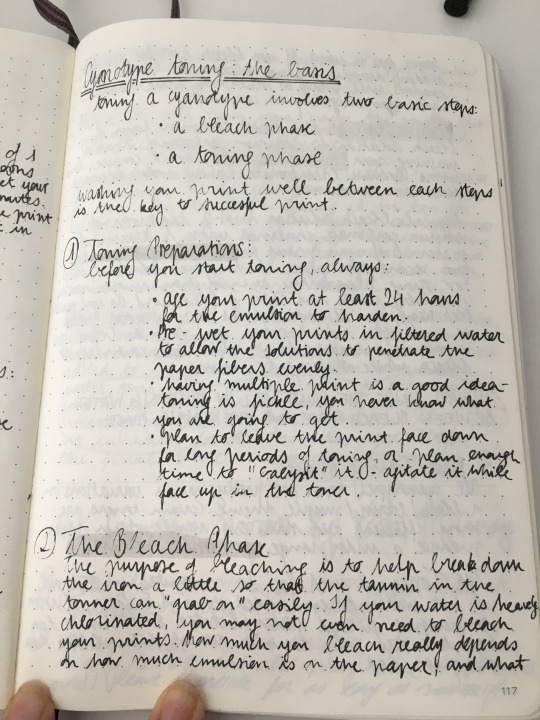 of 1
et your
minutes.
e print
in
Cyanotype toning: the basis
toning a cyanotype involves two basic steps:
• a bleach phase
• a toning phase
washing your print well between each steps
is the key to succesful print.
① Toning Preparations:
before you start toning, always:
• age your print at least 24 hours
for the emulsion to harden.
• Pre-wet your prints in filtered water
to allow the solutions to penetrate the
paper fibers evenly.
• having multiple print is a good idea-
toning is fickle, you never know what
you are going to get.
• plan to leave the print face down
for long periods of toning, or plan enough
time to it - agitate it while
face up in the toner.
② The Bleach Phase
the purpose of bleaching is to help break down
the iron a little so that the tannin in the
tonner can "grab on" easily. If your water is heavely
chlorinated, you may not even need to bleach
your prints. How much you bleach really depends
on how much emulsion is on the paper, and what
117